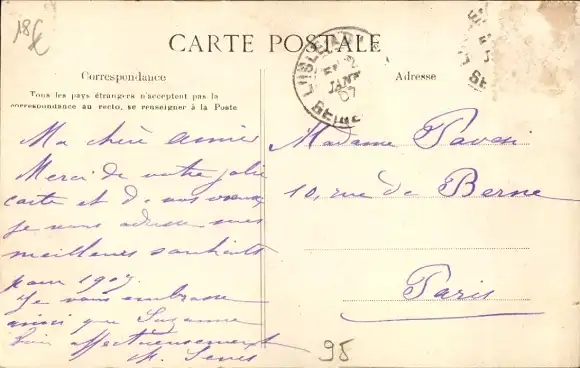 18€
CARTE POSTALE
Correspondance
Tous les pays étrangers n'acceptent pas la
correspondance au recto, se renseigner à la Poste
Adresse
2
JANV
07
SEINE
Ma chère amie
Merci de votre jolie
carte et de vos vœux
je vous adresse mes
meilleures souhaits
pour 1907.
Je vous embrasse
ainsi que Suzanne
bien affectueusement
Madame
10, rue de Berne
Paris
95